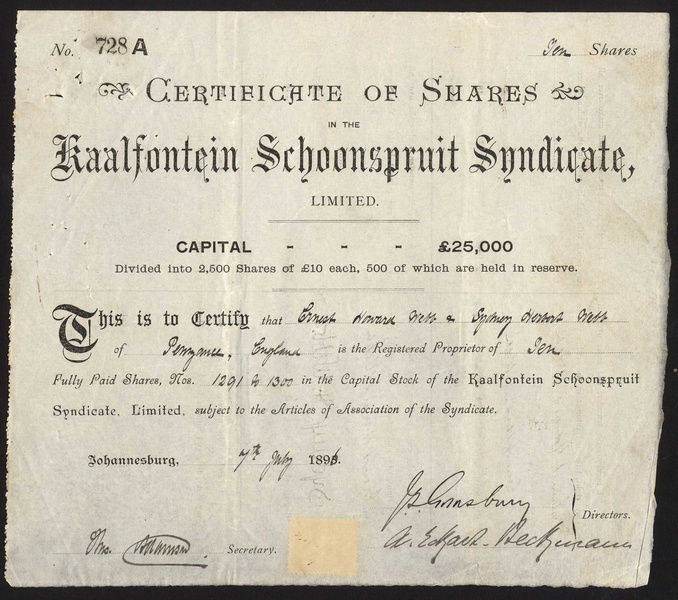 No. 728 A Ten Shares
CERTIFICATE OF SHARES
IN THE
Kaalfontein Schoonspruit Syndicate,
LIMITED.
CAPITAL - - - £25,000
Divided into 2,500 Shares of £10 each, 500 of which are held in reserve.
This is to Certify that Ernest Howard Webb & Sydney Herbert Webb
of Penzance, England is the Registered Proprietor of Ten
Fully Paid Shares, Nos. 1291 to 1300 in the Capital Stock of the Kaalfontein Schoonspruit
Syndicate, Limited, subject to the Articles of Association of the Syndicate.
Johannesburg, 7th July 1896.
Directors.
A. Eckart-Beckmann
Secretary.